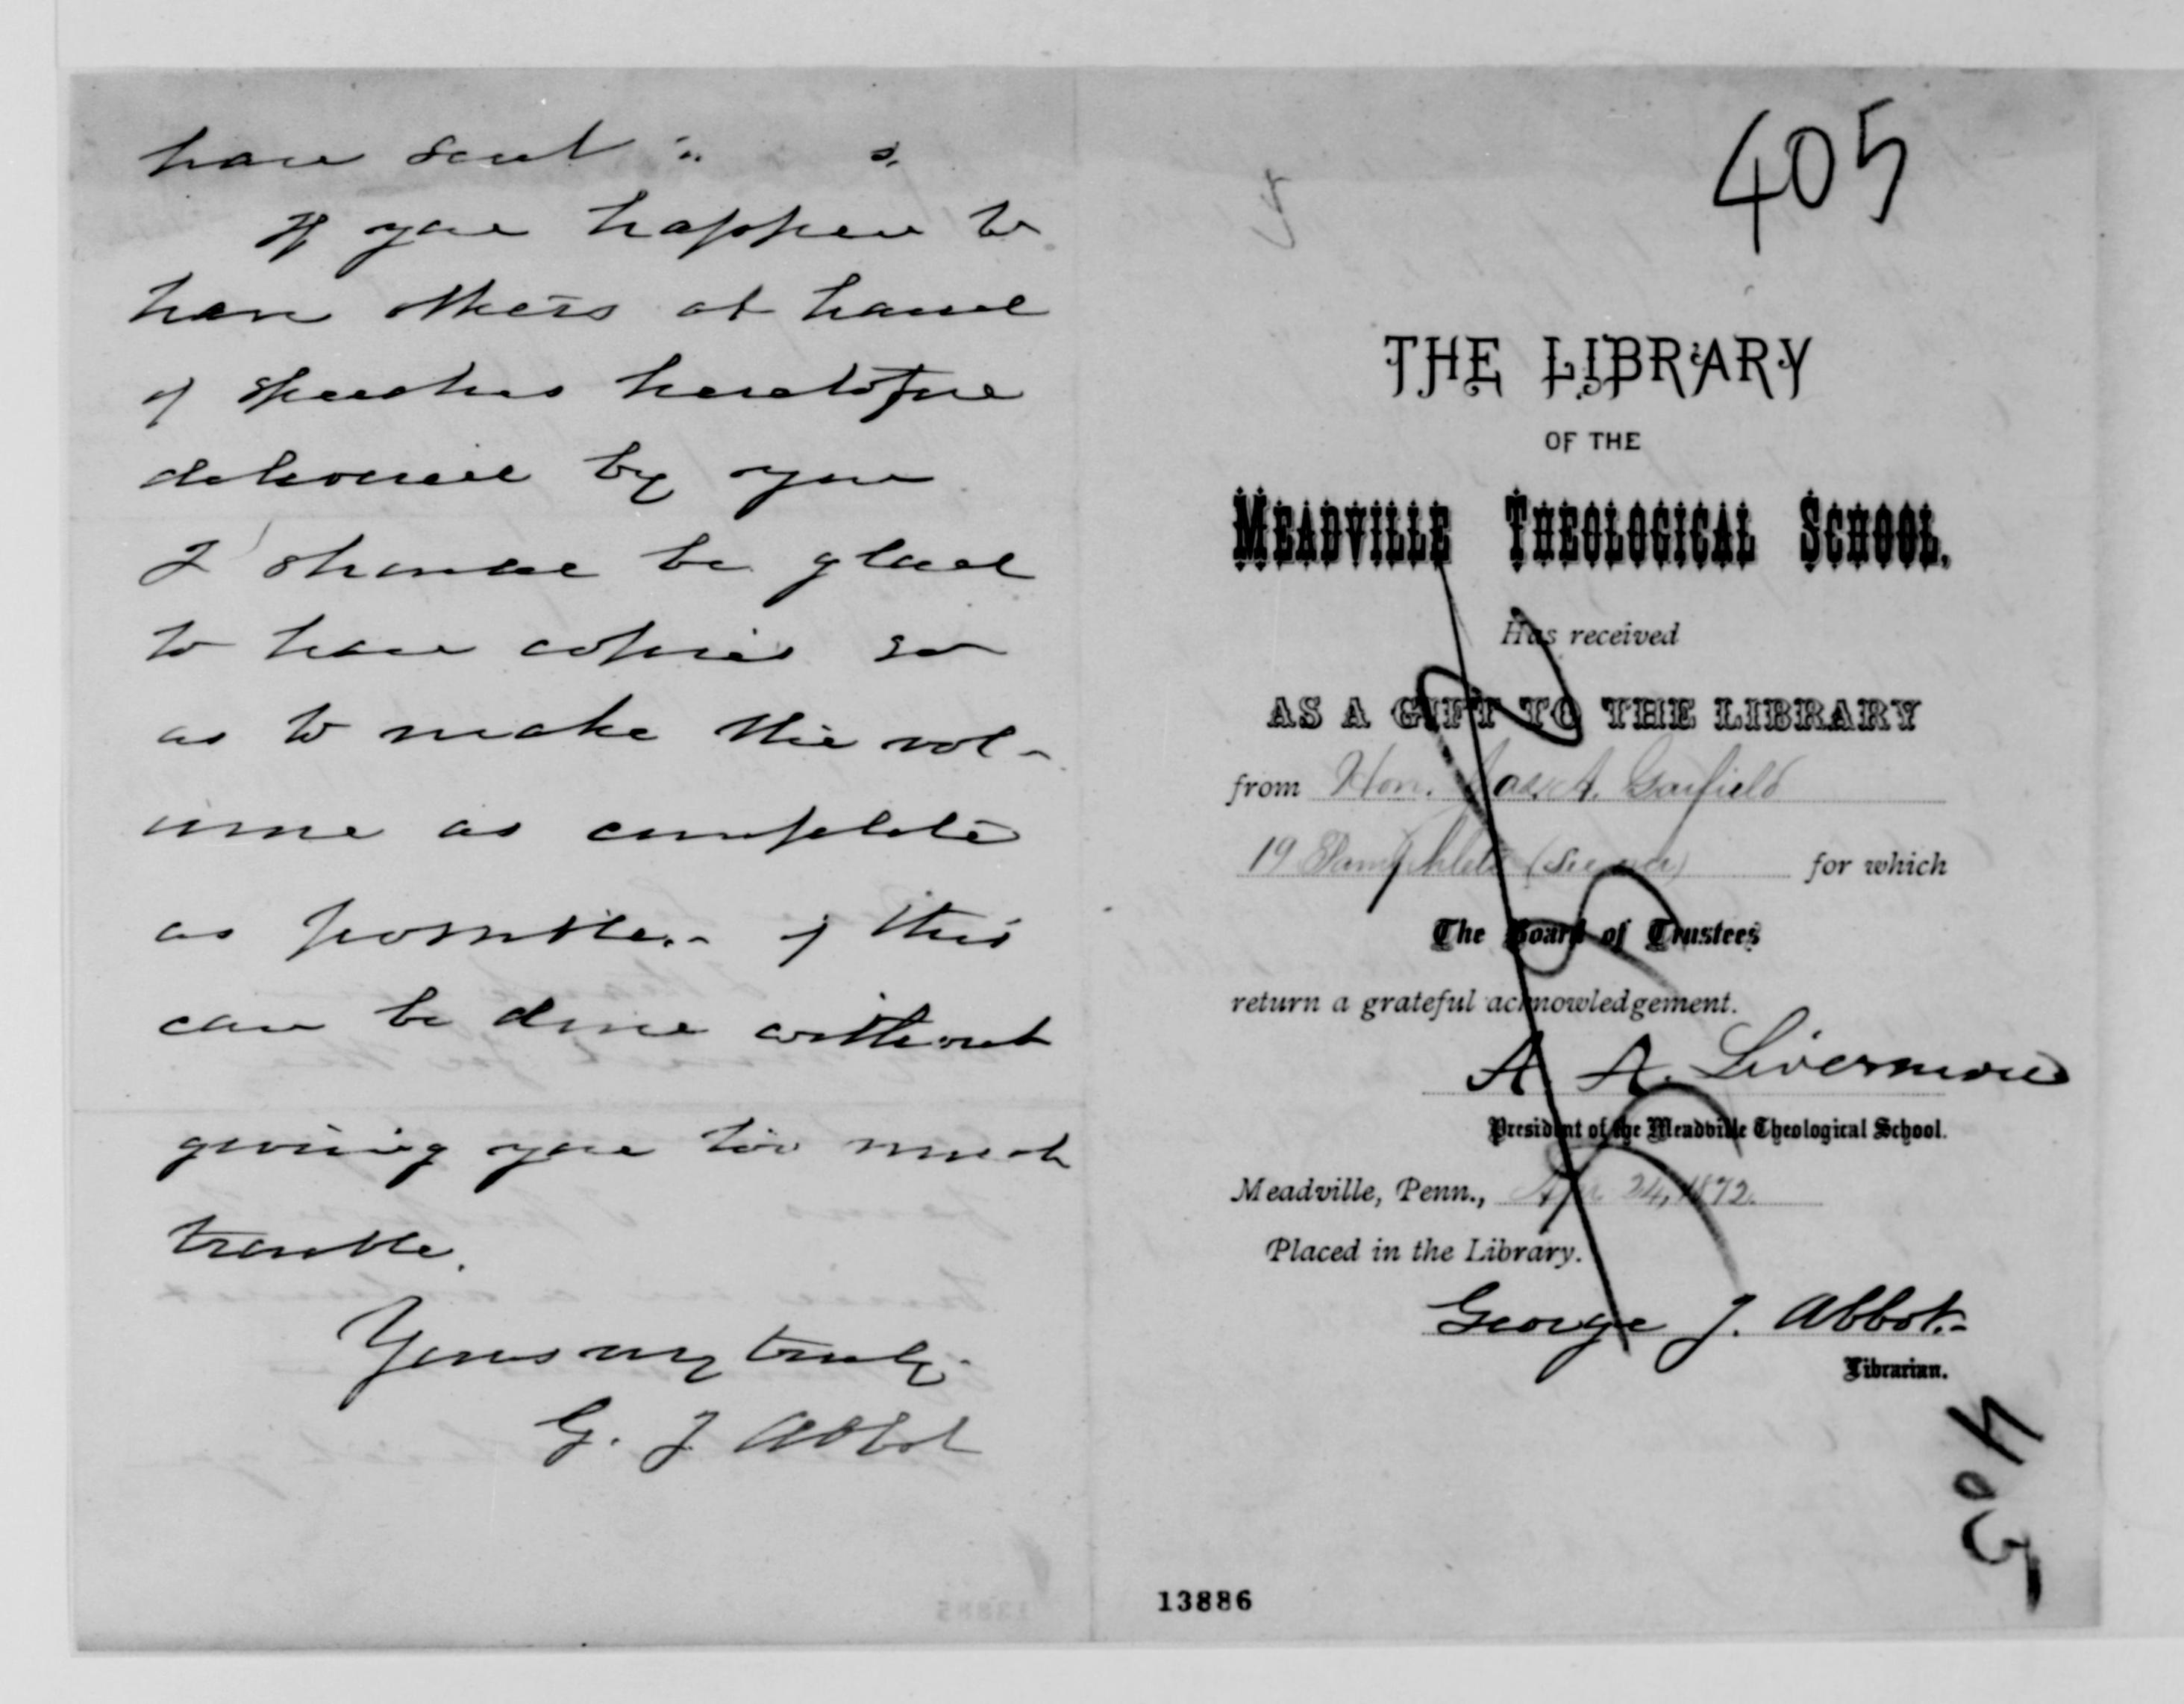 have sent
If you happen to
have others at hand
of speeches heretofore
delivered by you
I should be glad
to have copies so
as to make the vol-
ume as complete
as possible.- if this
can be done without
giving you too much
trouble.
Yours very truly
G. J. Abbot
405
THE LIBRARY
OF THE
MEADVILLE THEOLOGICAL SCHOOL.
Has received
AS A GIFT TO THE LIBRARY
from Hon. Jas. A. Garfield
19 Pamphlets for which
The Board of Trustees
return a grateful acknowledgement.
A. A. Livermore
President of the Meadville Theological School.
Meadville, Penn., Apr 24, 1872.
Placed in the Library.
George J. Abbot.-
Librarian.
405
13886
13885